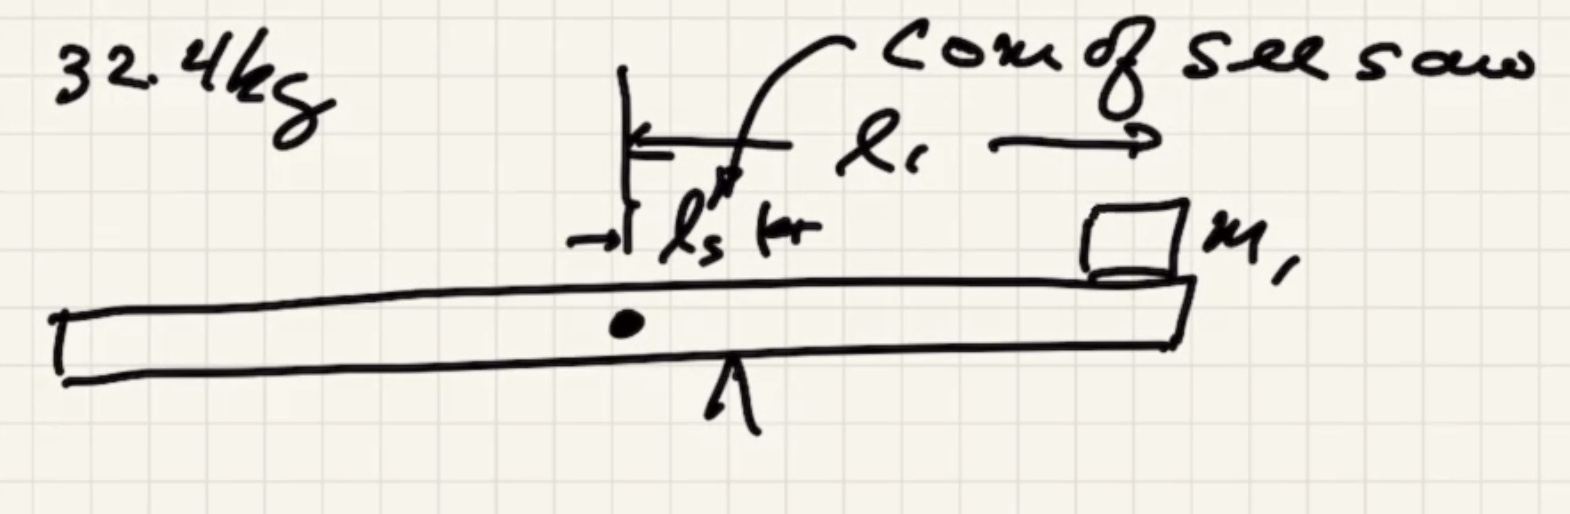 32.4kg
Com of see saw
l₁
ls
m₁